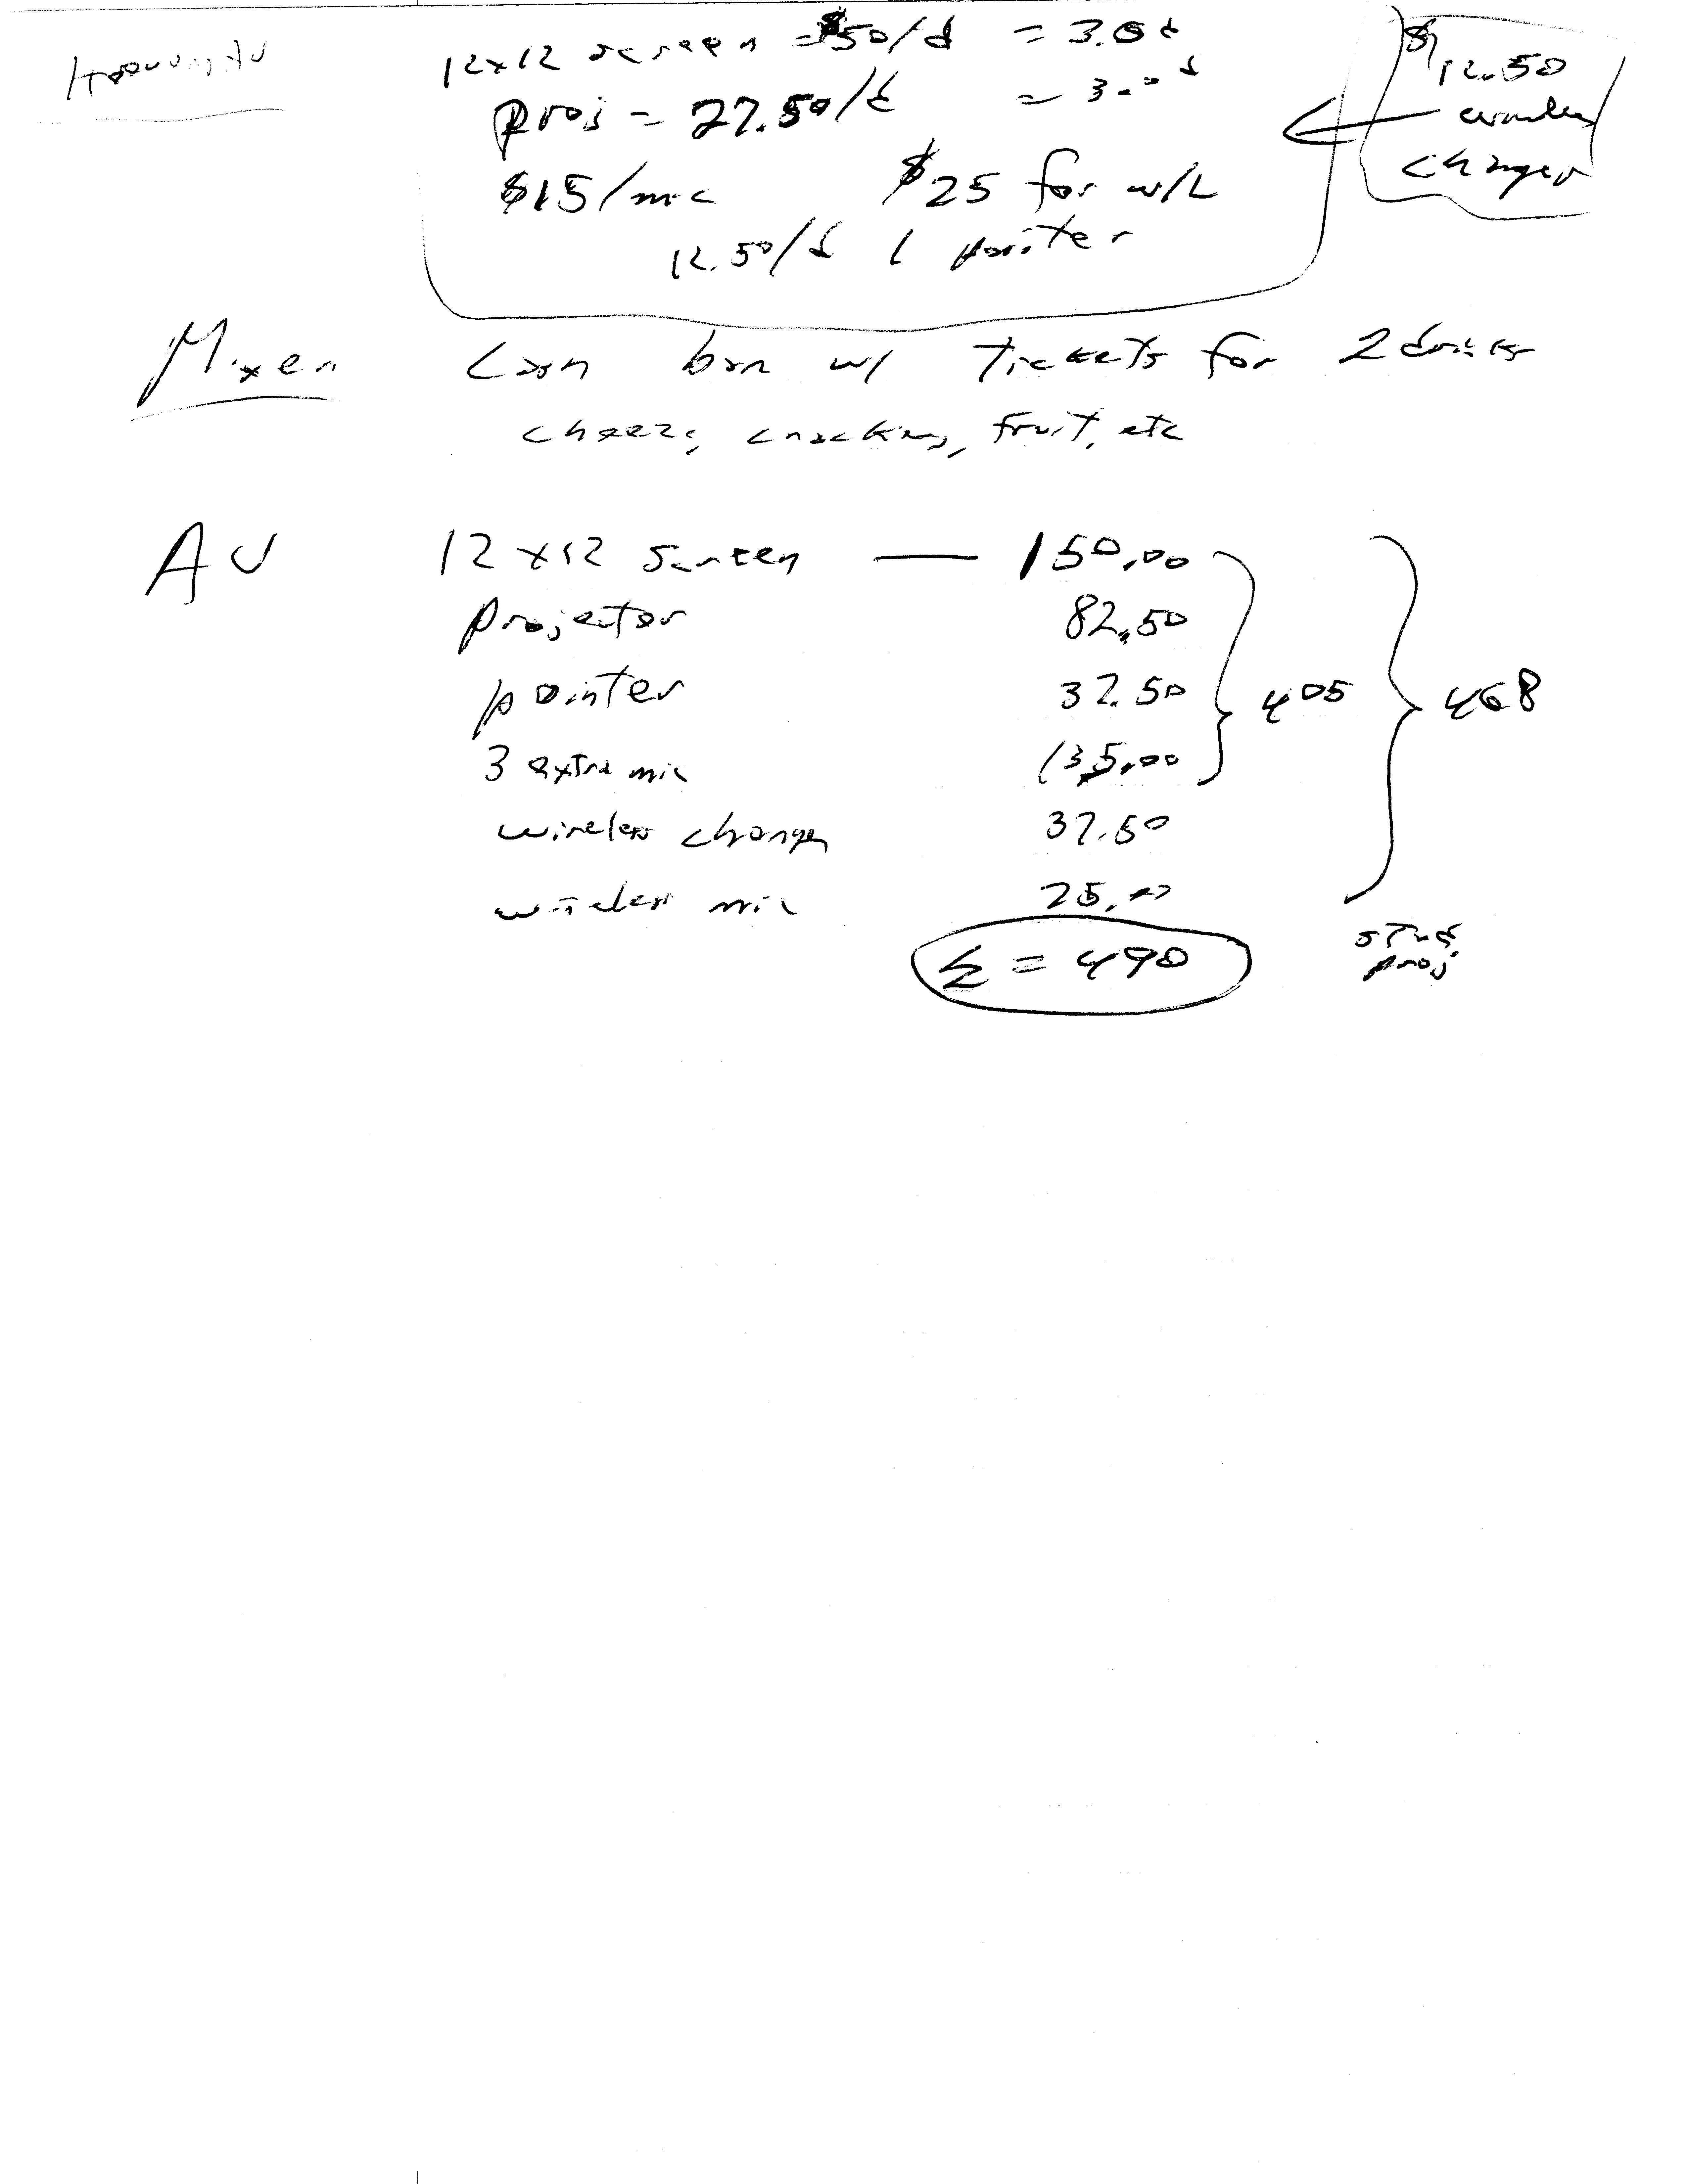 12x12 screen = $50/d = 3.0 d
proj = 27.50/d = 3.0 d
$15/mic $25 for w/L
12.50/d 1 pointer
$12.50
wireless
changer
Mixer Cash bar w/ tickets for 2 drinks
cheeze, crackers, fruit, etc
AV 12x12 screen — 150.00
projector 82.50
pointer 37.50 405 468
3 extra mic 135.00
wireless changer 37.50
wireless mic 25.00
Σ = 490
proj